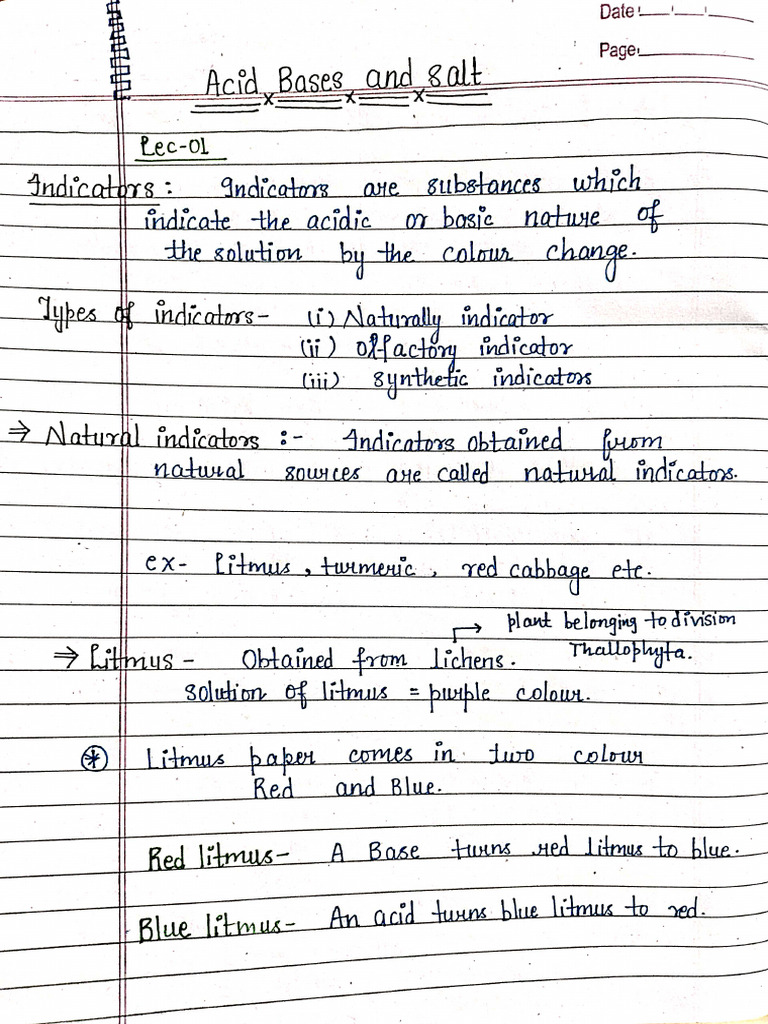 Date
Page
Acid Bases and salt
Lec-01
Indicators : Indicators are substances which
indicate the acidic or basic nature of
the solution by the colour change.
Types of indicators- (i) Naturally indicator
(ii) Olfactory indicator
(iii) synthetic indicators
⇒ Natural indicators :- Indicators obtained from
natural sources are called natural indicators.
ex- Litmus, turmeric, red cabbage etc.
→ plant belonging to division
Thallophyta.
⇒ Litmus - Obtained from lichens.
solution of litmus = purple colour.
⊛ Litmus paper comes in two colour
Red and Blue.
Red litmus- A Base turns red litmus to blue.
Blue litmus- An acid turns blue litmus to red.